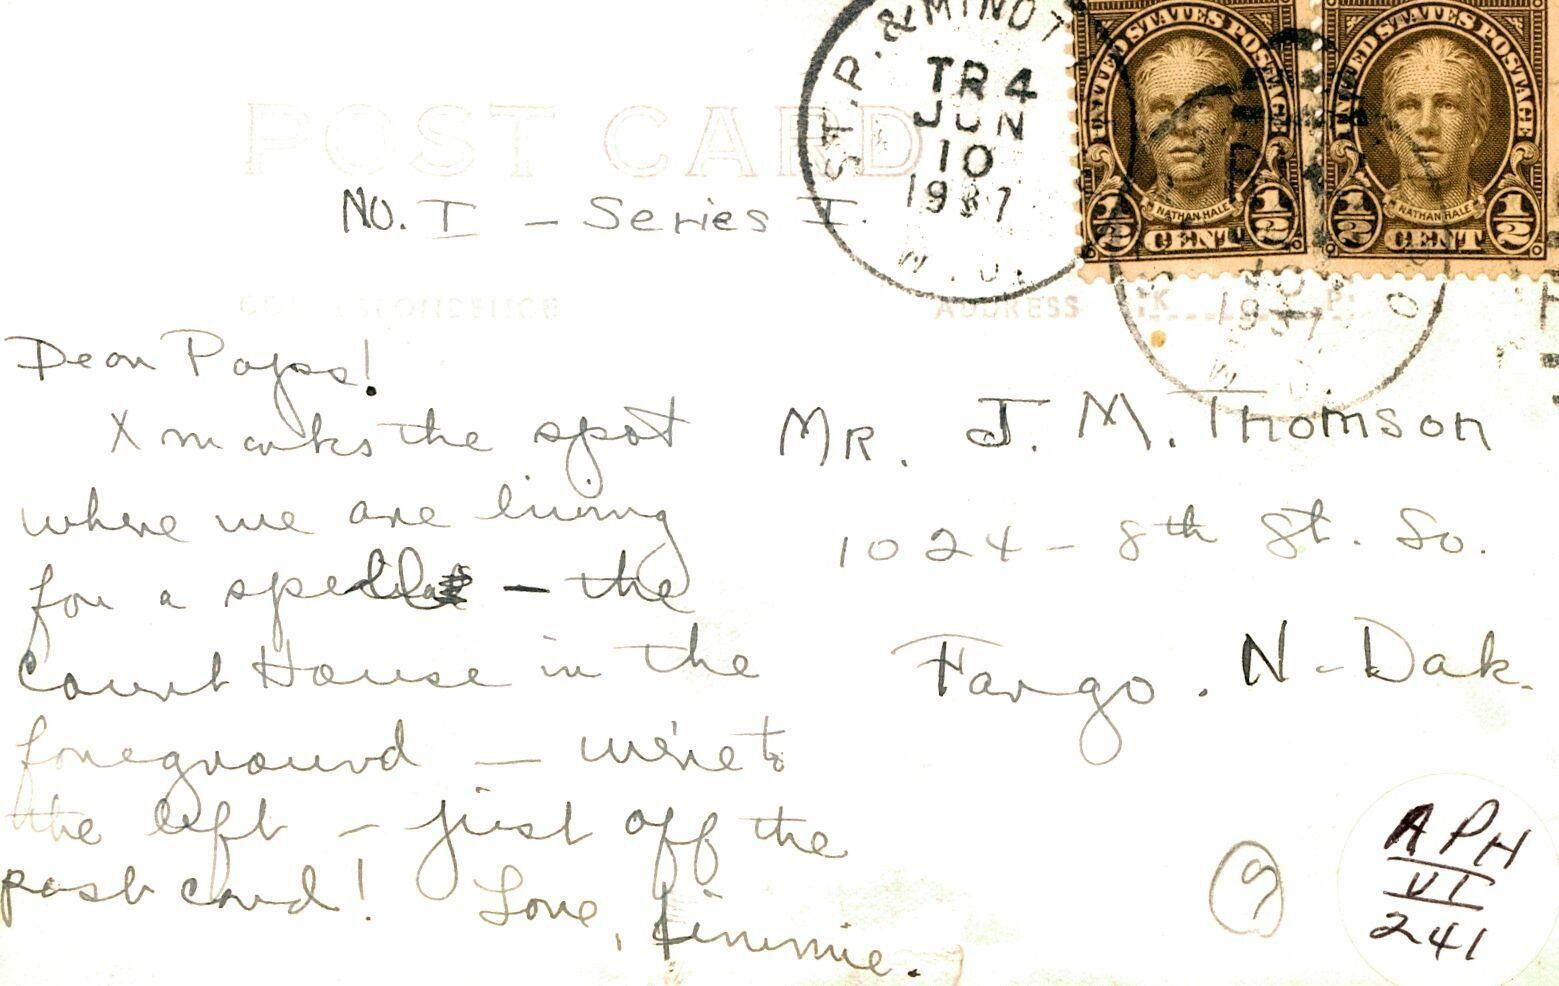 ST. P. & MINOT
TR 4
JUN
10
1937
UNITED STATES POSTAGE
NATHAN HALE
1/2 CENT 1/2
UNITED STATES POSTAGE
NATHAN HALE
1/2 CENT 1/2
POST CARD
No. I - Series I.
CORRESPONDENCE
ADDRESS
1937
Dear Paps!
X marks the spot
where we are living
for a spell - the
Court House in the
foreground - we're to
the left - just off the
post card! Love, Jimmie.
MR. J. M. Thomson
1024 - 8th St. So.
Fargo. N-Dak.
9
APH
VI
241